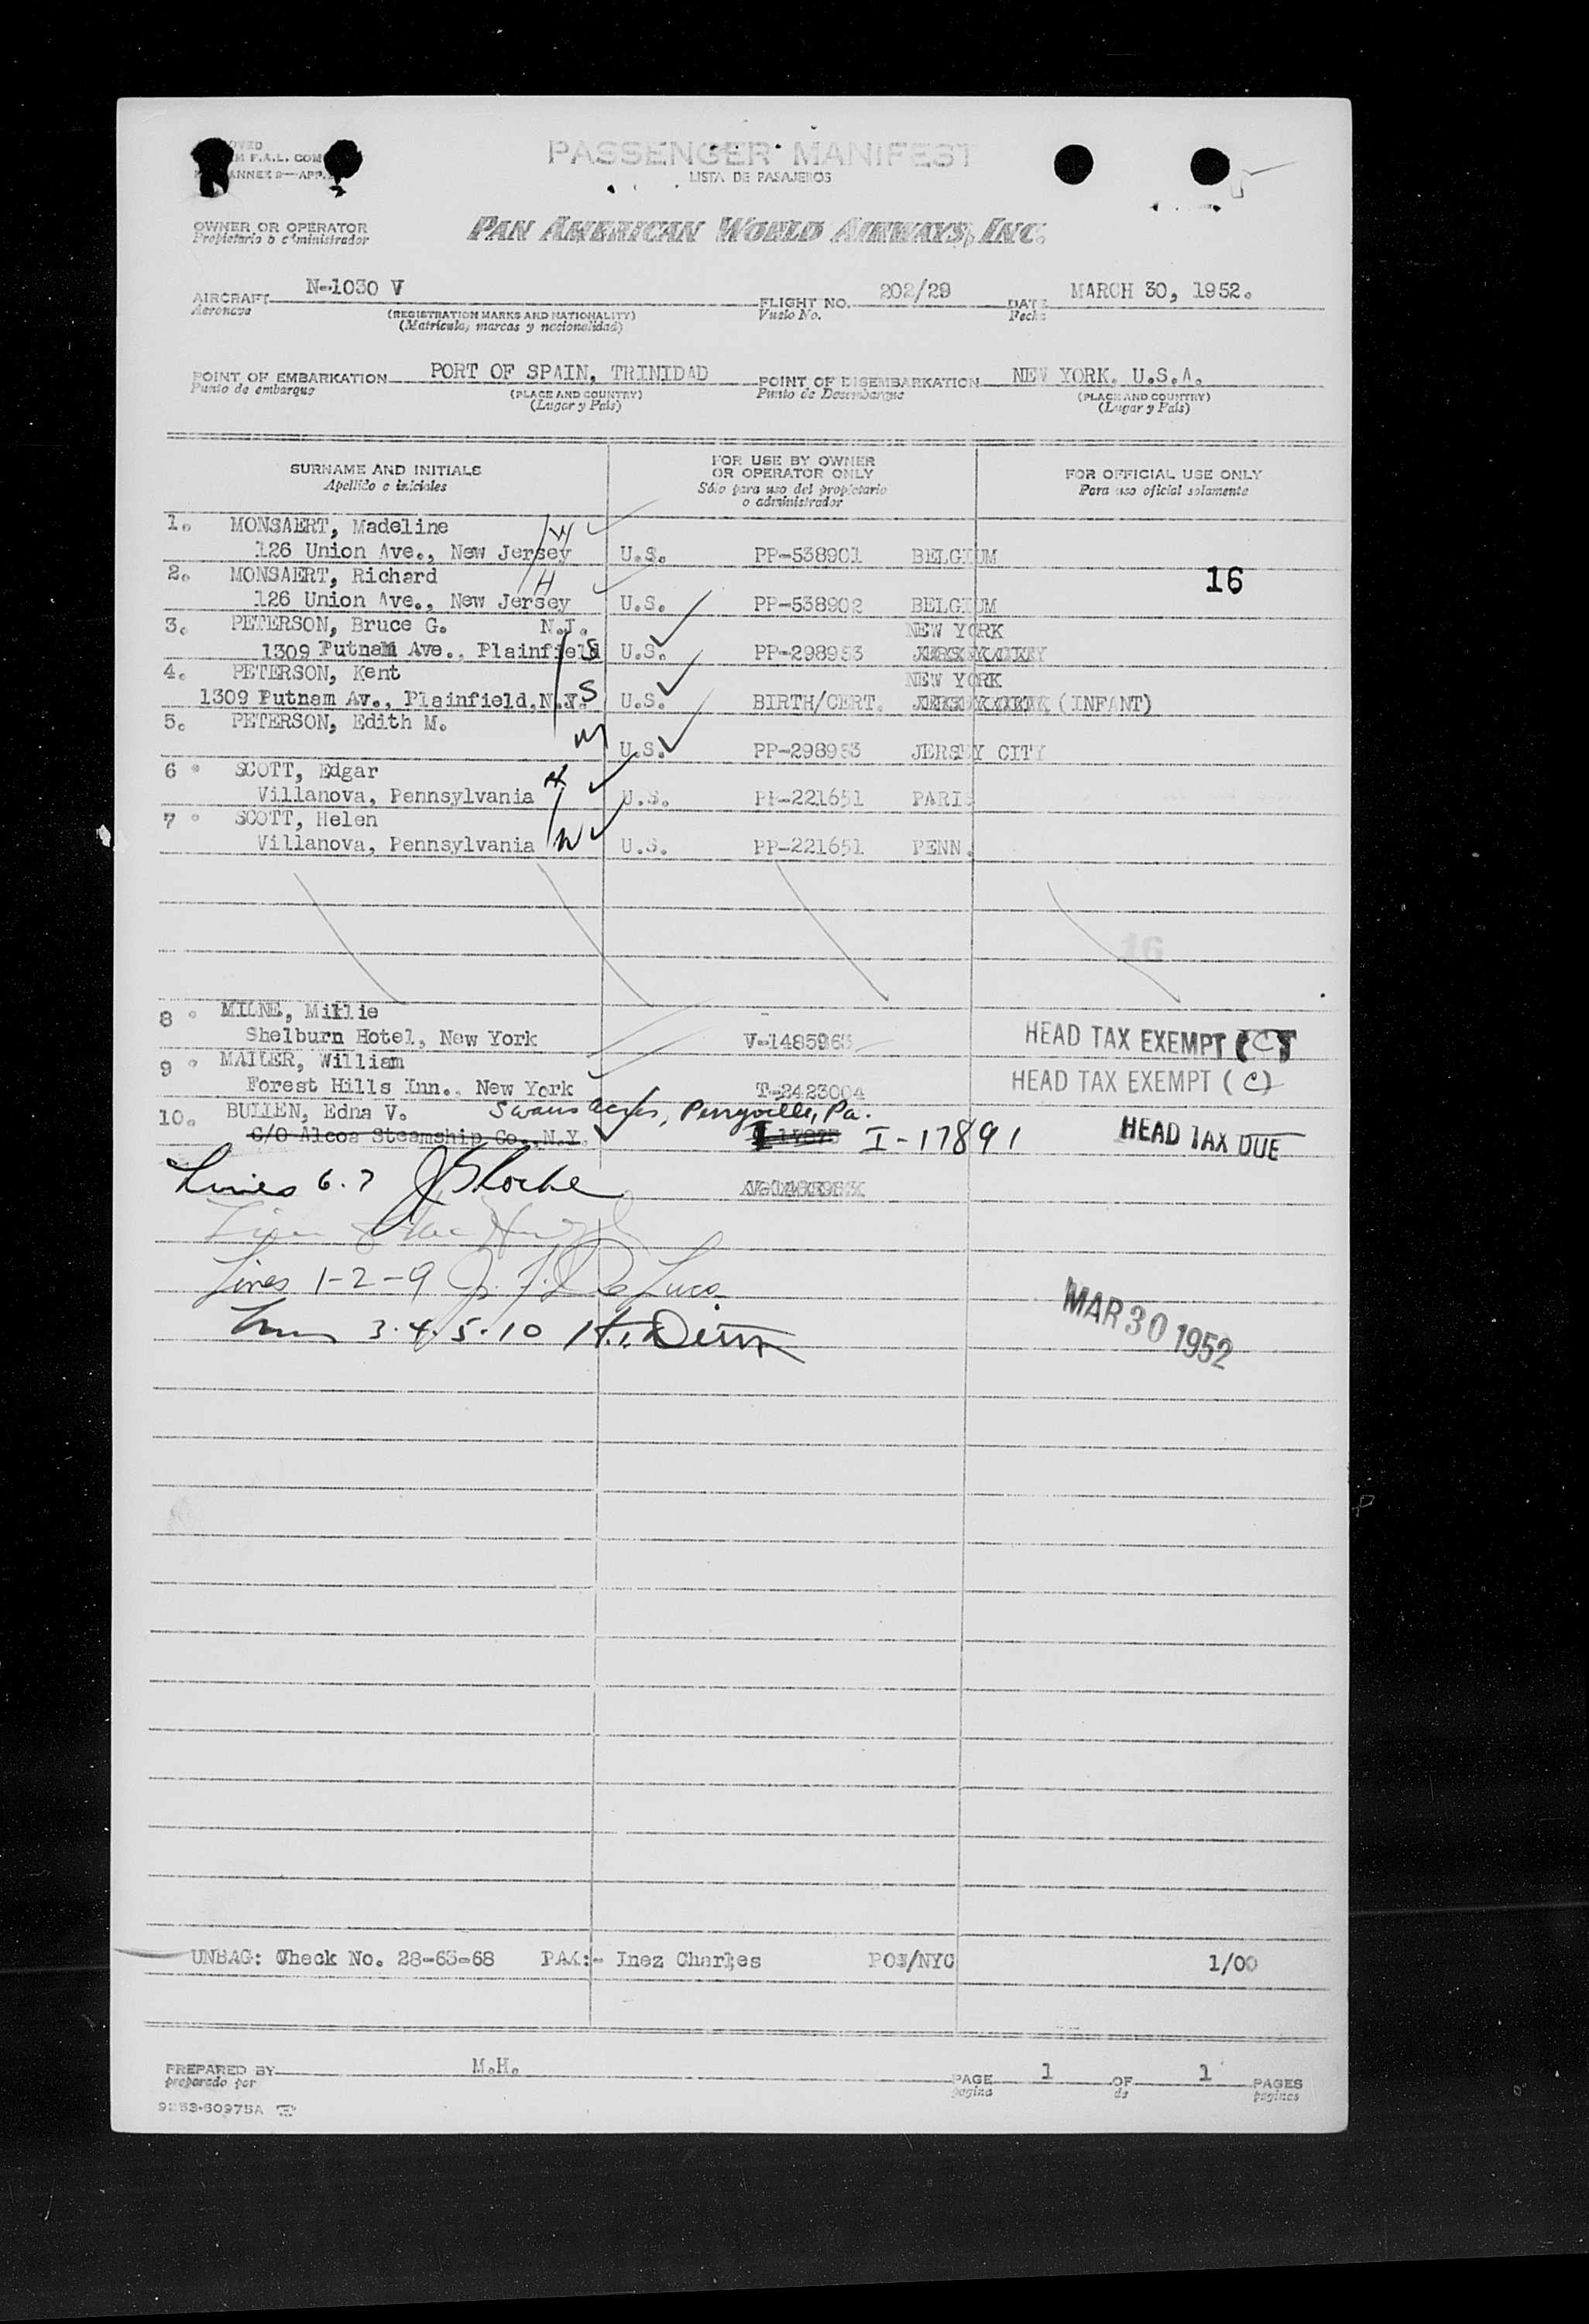 F.A.L. COM
ANNEX 9—APP.
PASSENGER MANIFEST
LISTA DE PASAJEROS
OWNER OR OPERATOR
Propietario o administrador
PAN AMERICAN WORLD AIRWAYS, INC.
AIRCRAFT N-1030 V FLIGHT NO. 202/29 DATE MARCH 30, 1952.
Aeronave (REGISTRATION MARKS AND NATIONALITY) Vuelo No. Fecha
(Matrícula, marcas y nacionalidad)
POINT OF EMBARKATION PORT OF SPAIN, TRINIDAD POINT OF DISEMBARKATION NEW YORK, U.S.A.
Punto de embarque (PLACE AND COUNTRY) Punto de Desembarque (PLACE AND COUNTRY)
(Lugar y País) (Lugar y País)
SURNAME AND INITIALS
Apellido e iniciales
FOR USE BY OWNER
OR OPERATOR ONLY
Sólo para uso del propietario
o administrador
FOR OFFICIAL USE ONLY
Para uso oficial solamente
1. MONSAERT, Madeline W
126 Union Ave., New Jersey U.S. PP-538901 BELGIUM
2. MONSAERT, Richard H 16
126 Union Ave., New Jersey U.S. PP-538902 BELGIUM
3. PETERSON, Bruce G. N.J. NEW YORK
1309 Putnam Ave., Plainfield S U.S. PP-298953
4. PETERSON, Kent NEW YORK
1309 Putnam Av., Plainfield, N.Y. S U.S. BIRTH/CERT. (INFANT)
5. PETERSON, Edith M.
M U.S. PP-298953 JERSEY CITY
6. SCOTT, Edgar H
Villanova, Pennsylvania U.S. PP-221651 PARIS
7. SCOTT, Helen
Villanova, Pennsylvania W U.S. PP-221651 PENN.
16
8. MILNE, Millie
Shelburn Hotel, New York V-1485963 HEAD TAX EXEMPT (C)
9. MAILER, William
Forest Hills Inn., New York T-2423004 HEAD TAX EXEMPT (C)
10. BULLEN, Edna V. Swans acres, Perryville, Pa.
C/O Alcoa Steamship Co., N.Y. I-17891 HEAD TAX DUE
Lines 6.7
Lines 1-2-9 J. F. De Luca
Lines 3.4.5.10
MAR 30 1952
UNBAG: Check No. 28-65-68 PAX:- Inez Charles POS/NYC 1/00
PREPARED BY M.H. PAGE 1 OF 1 PAGES
preparado por pagina de paginas
9253-60975A